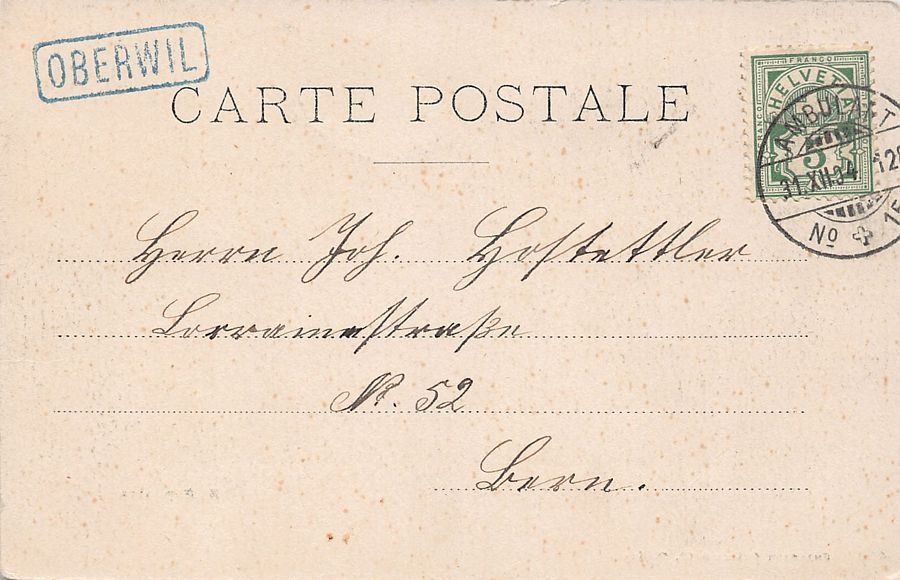 OBERWIL
CARTE POSTALE
FRANCO
HELVETIA
FRANCO
5
AMBULANT
31.XII.94
No 15
Herrn Joh. Hostettler
Lorrainestraße
No. 52
Bern.